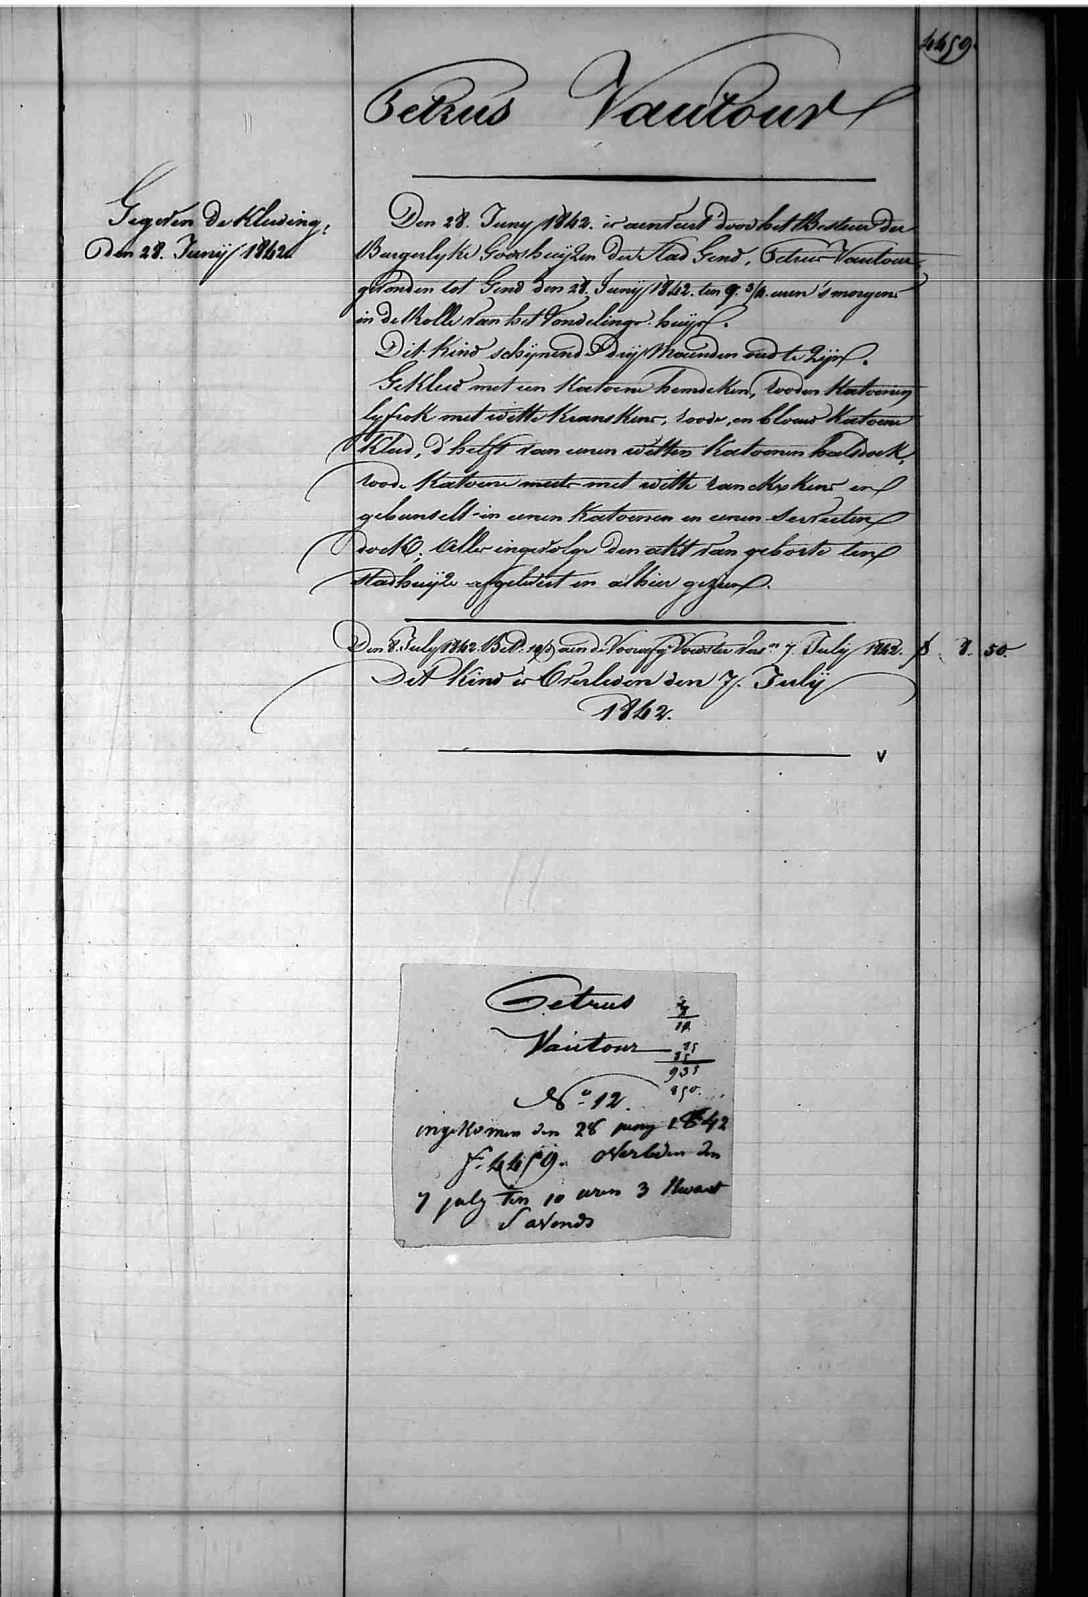 4459.
Petrus Vautour
Gegeven de Kleeding,
den 28. Junij 1842
Den 28. Juny 1842. is aenveert door het Bestuer der
Burgerlyke Godshuijzen der Stad Gend, Petrus Vautour,
gevonden tot Gend den 28. Junij 1842. ten 9. 3/4 uren 's morgens
in de Rolle van het Vondelings-huijs.
Dit Kind schijnende drij Maenden oud te zijn.
Gekleed met een Katoene hemdeken, rooden Katoenen
lyfrok met witte Kranskens, roode, en blouw Katoene
Kleed, d'helft van eenen witten Katoenen halsdoek,
roode Katoene muts met witte ranckskens en
gebunselt in eenen Katoenen en eenen servietten
doek. Alles ingevolge den akt van geborte ten
Stadhuijze afgelevert en alhier gezien.
Den 8. July 1842. Bet. aen de Voorzy. Voedster 7. July 1842. f 8. 50.
Dit Kind is Overleden den 7. Julij
1842.
v
Petrus
Vautour
14
85
935
850.
No. 12.
ingekomen den 28 juny 1842
f. 4459. overleden den
7 july ten 10 uren 3 kwaert
S avonds